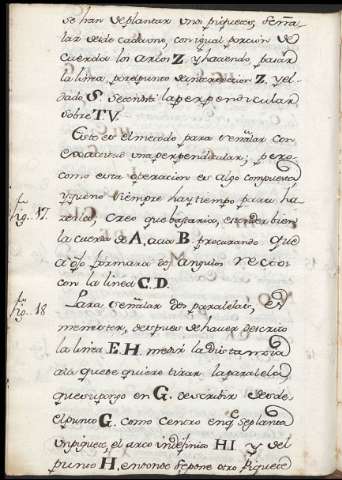 se han de plantar unos piquetes, señalar desde cada uno, con igual porcion de
cuerda los arcos Z. y haciendo, pasar
la linea por el punto de interseccion Z. y el
dado S. sera la perpendicular
sobre TV.
Esto es el metodo para señalar con
exactitud una perpendicular; pero
como esta operacion es algo compuesta
y que no siempre hay tiempo para ha
cerlo, creo que bastaria, estender bien
la cuerda de A, acia B. procurando que
a ojo formara dos angulos rectos
con la linea C.D.
fig. 17.
Para señalar dos paralelas, es
menester, despues de haver descrito
la linea E.H. medir la distancia
a la que se quiere tirar la paralela,
que supongo en G. describir desde
el punto G. como centro en que se planta
un piquete, el arco indefinito H I y del
punto H. en donde se pone otro piquete
fig. 18